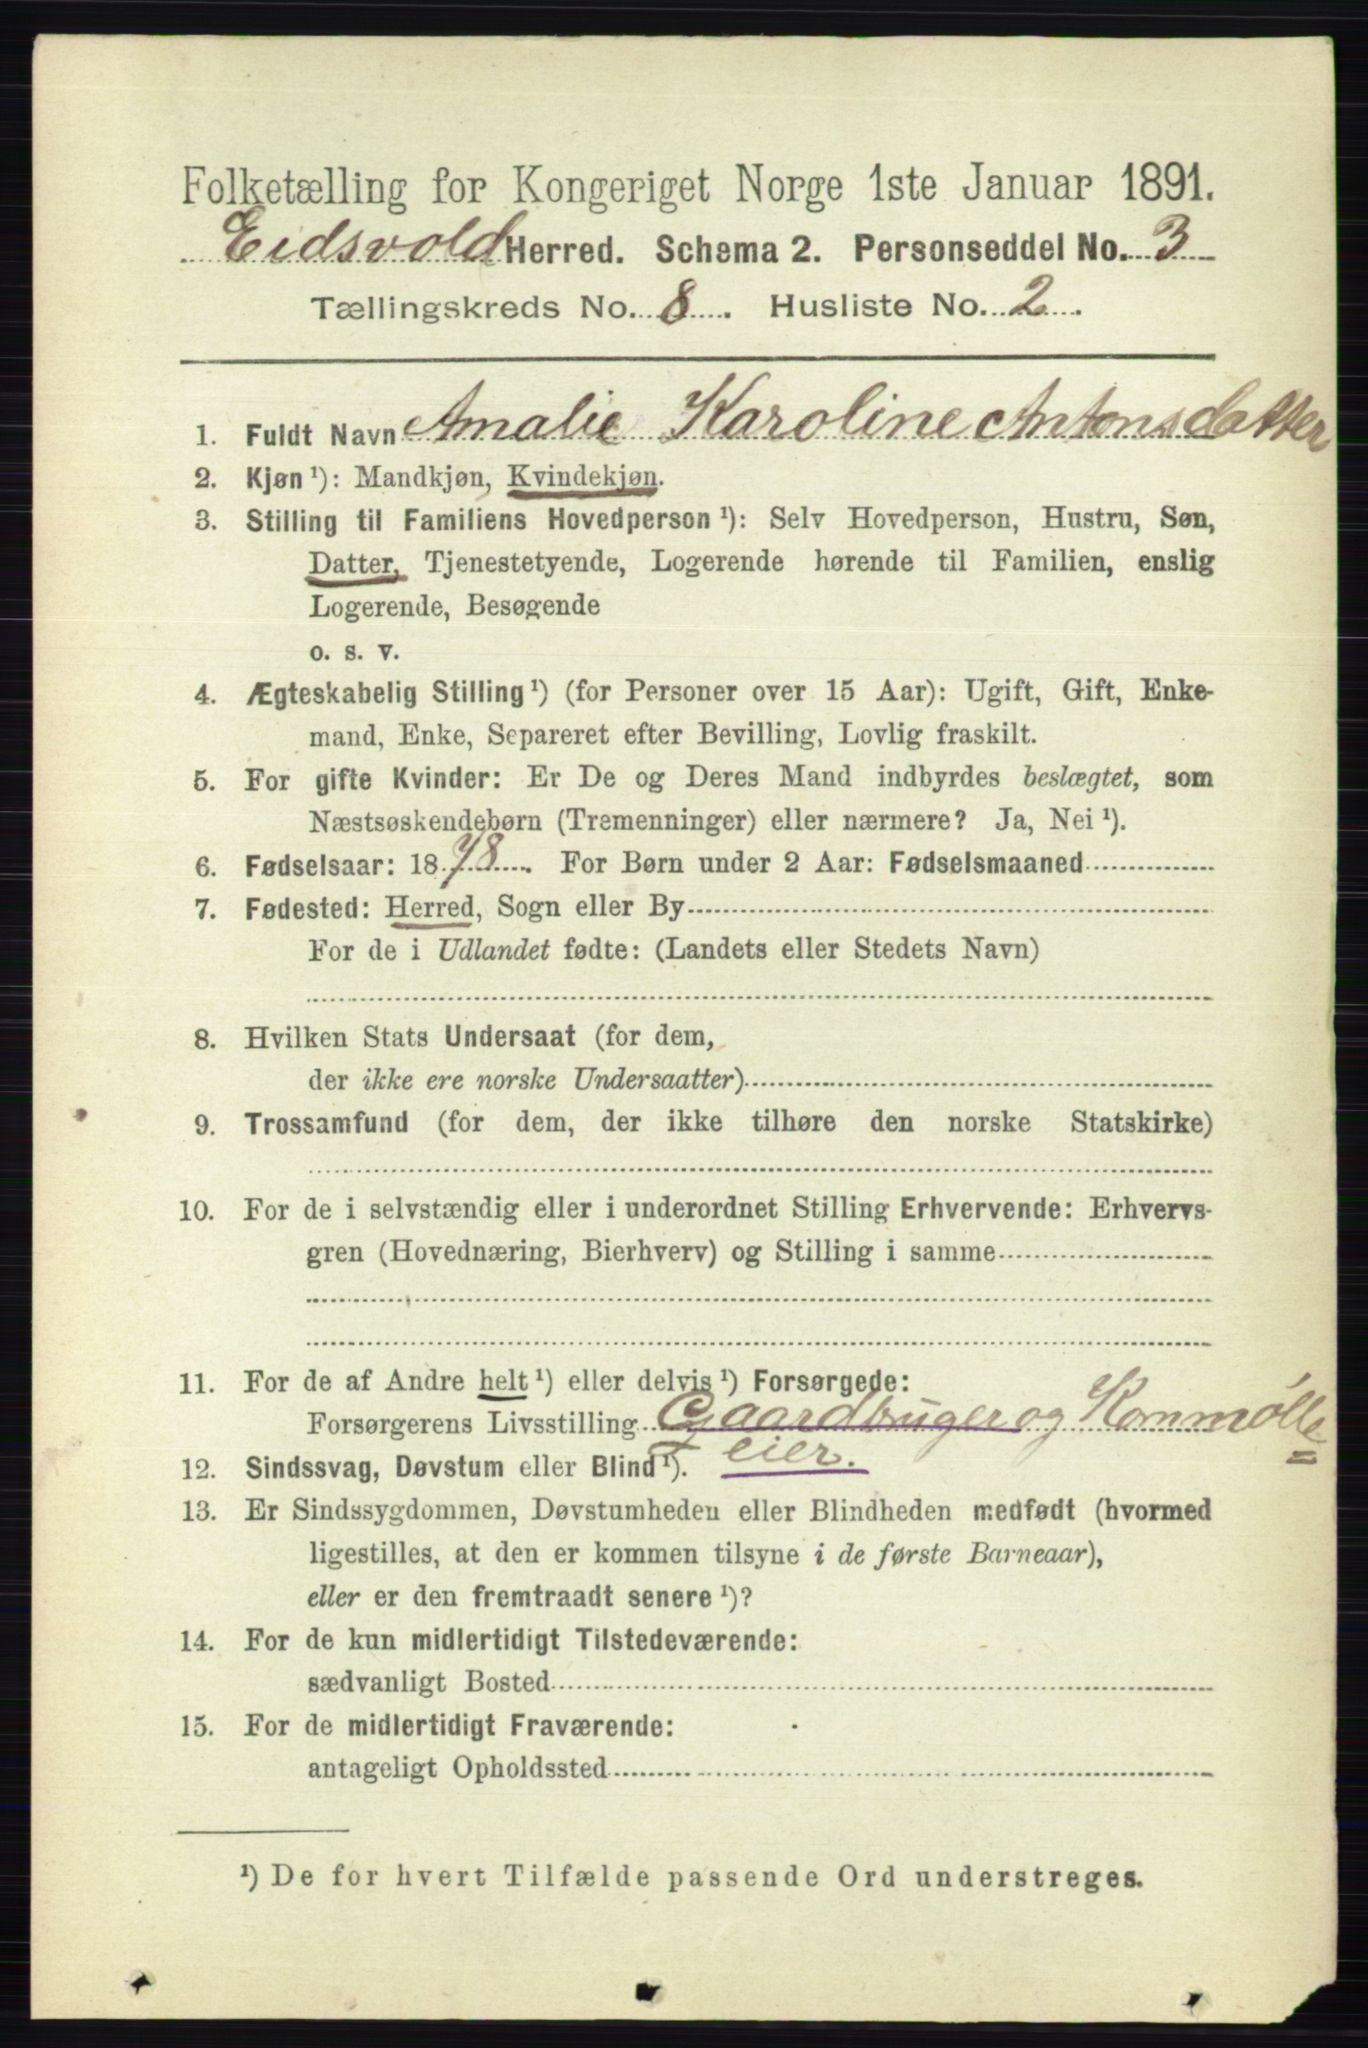 Folketælling for Kongeriget Norge 1ste Januar 1891.
Eidsvold Herred. Schema 2. Personseddel No. 3
Tællingskreds No. 8. Husliste No. 2.
1. Fuldt Navn Amalie Karoline Antonsdatter
2. Kjøn ¹): Mandkjøn, Kvindekjøn.
3. Stilling til Familiens Hovedperson ¹): Selv Hovedperson, Hustru, Søn,
Datter, Tjenestetyende, Logerende hørende til Familien, enslig
Logerende, Besøgende
o. s. v.
4. Ægteskabelig Stilling ¹) (for Personer over 15 Aar): Ugift, Gift, Enke-
mand, Enke, Separeret efter Bevilling, Lovlig fraskilt.
5. For gifte Kvinder: Er De og Deres Mand indbyrdes beslægtet, som
Næstsøskendebørn (Tremenninger) eller nærmere? Ja, Nei ¹).
6. Fødselsaar: 1878. For Børn under 2 Aar: Fødselsmaaned
7. Fødested: Herred, Sogn eller By
For de i Udlandet fødte: (Landets eller Stedets Navn)
8. Hvilken Stats Undersaat (for dem,
der ikke ere norske Undersaatter)
9. Trossamfund (for dem, der ikke tilhøre den norske Statskirke)
10. For de i selvstændig eller i underordnet Stilling Erhvervende: Erhvervs-
gren (Hovednæring, Bierhverv) og Stilling i samme
11. For de af Andre helt ¹) eller delvis ¹) Forsørgede:
Forsørgerens Livsstilling Gaardbruger og Kornmølle
eier.
12. Sindssvag, Døvstum eller Blind ¹).
13. Er Sindssygdommen, Døvstumheden eller Blindheden medfødt (hvormed
ligestilles, at den er kommen tilsyne i de første Barneaar),
eller er den fremtraadt senere ¹)?
14. For de kun midlertidigt Tilstedeværende:
sædvanligt Bosted
15. For de midlertidigt Fraværende:
antageligt Opholdssted
¹) De for hvert Tilfælde passende Ord understreges.